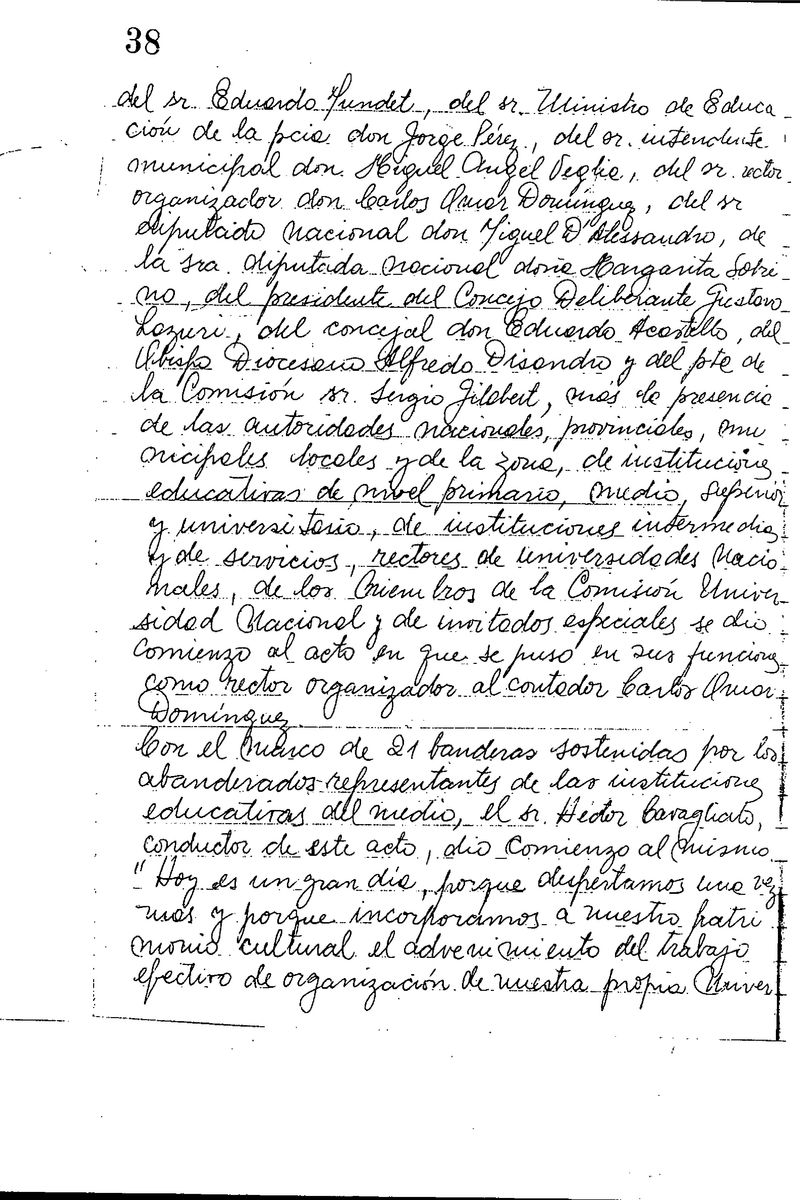 38
del sr. Eduardo Mundet, del sr. Ministro de Educa
ción de la pcia don Jorge Pérez, del sr. intendente
municipal don Miguel Angel Veglia, del sr. rector
organizador don Carlos Omar Domínguez, del sr
diputado nacional don Miguel D'Alessandro, de
la sra. diputada nacional doña Margarita Sobri
no, del presidente del Concejo Deliberante Gustavo
Lazuri, del concejal don Eduardo Acastello, del
Obispo Diocesano Alfredo Disandro y del pte de
la Comisión sr. Sergio Gilabert, más la presencia
de las autoridades nacionales, provinciales, mu
nicipales locales y de la zona, de instituciones
educativas de nivel primario, medio, superior
y universitario, de instituciones intermedias
y de servicios, rectores de universidades nacio
nales, de los miembros de la Comisión Univer
sidad Nacional y de invitados especiales se dio
comienzo al acto en que se puso en sus funciones
como rector organizador al contador Carlos Omar
Domínguez.
Con el marco de 21 banderas sostenidas por los
abanderados representantes de las instituciones
educativas del medio, el sr. Héctor Cavagliato,
conductor de este acto, dio comienzo al mismo
" Hoy es un gran día, porque despertamos una vez
mas y porque incorporamos a nuestro patri
monio cultural el advenimiento del trabajo
efectivo de organización de nuestra propia Univer